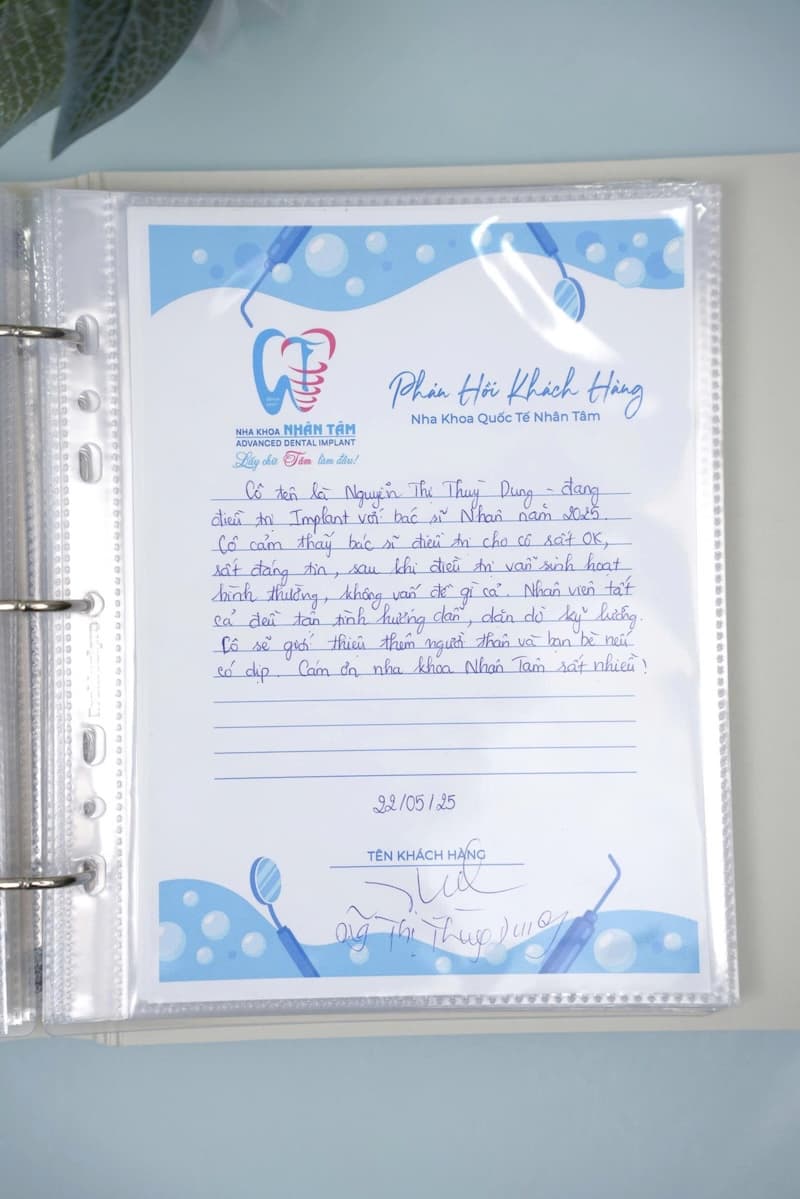 Phản Hồi Khách Hàng
Nha Khoa Quốc Tế Nhân Tâm
NHA KHOA NHÂN TÂM
ADVANCED DENTAL IMPLANT
Lấy chữ Tâm làm đầu!
Cô tên là Nguyễn Thị Thuỳ Dung - đang
điều trị Implant với bác sĩ Nhân năm 2025.
Cô cảm thấy bác sĩ điều trị cho cô rất OK,
rất đáng tin, sau khi điều trị vẫn sinh hoạt
bình thường, không vấn đề gì cả. Nhân viên tất
cả đều tận tình hướng dẫn, dặn dò kỹ lưỡng.
Cô sẽ giới thiệu thêm người thân và bạn bè nếu
có dịp. Cám ơn nha khoa Nhân Tâm rất nhiều!
22/05/25
TÊN KHÁCH HÀNG
Thị Thùy Dung